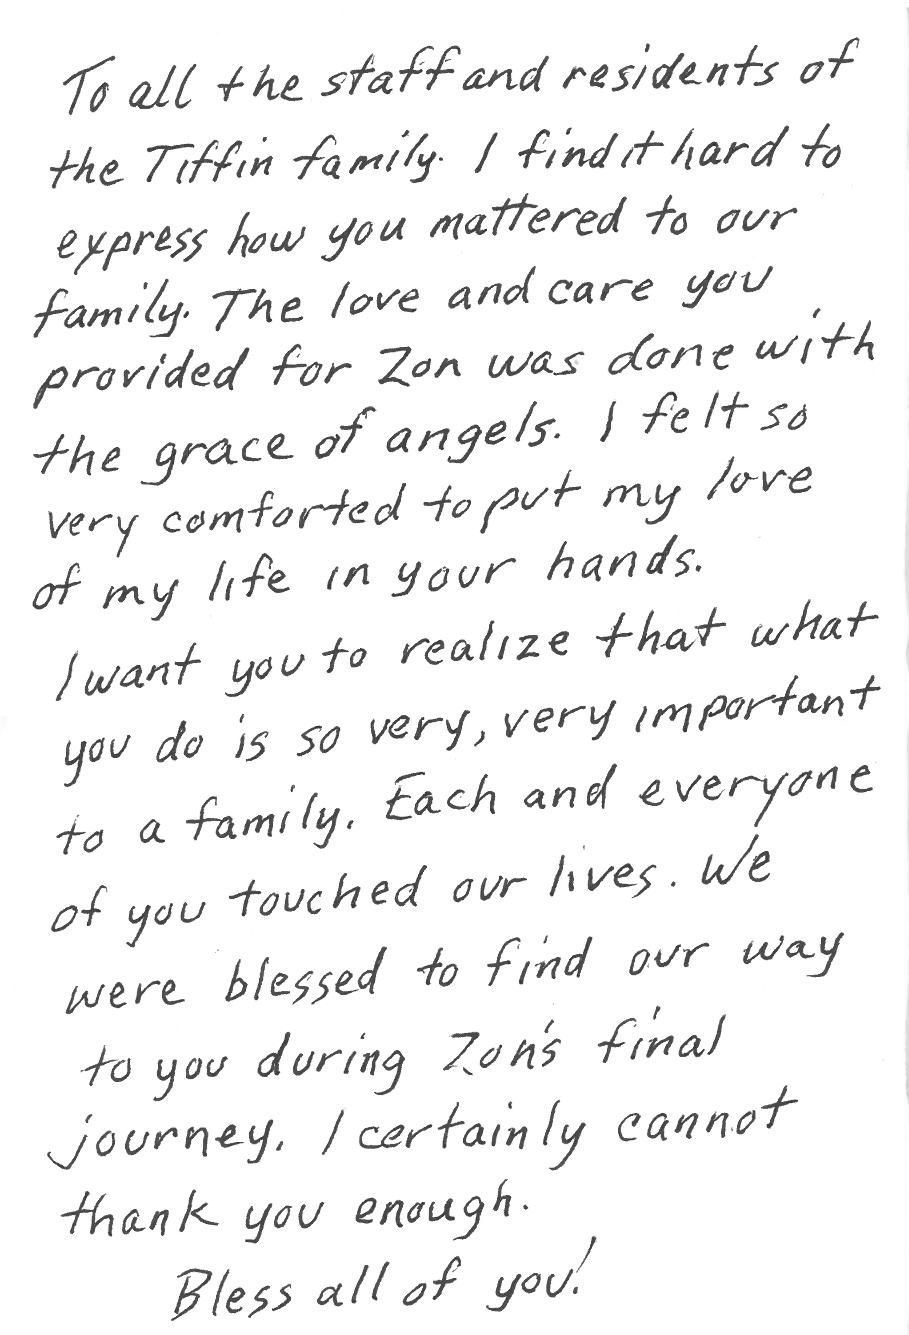 To all the staff and residents of
the Tiffin family. I find it hard to
express how you mattered to our
family. The love and care you
provided for Zon was done with
the grace of angels. I felt so
very comforted to put my love
of my life in your hands.
I want you to realize that what
you do is so very, very important
to a family. Each and everyone
of you touched our lives. We
were blessed to find our way
to you during Zon's final
journey. I certainly cannot
thank you enough.
Bless all of you!